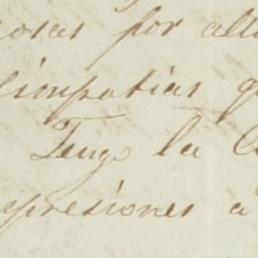 cosas por all
simpatias q
Tengo la C
xpresiones à